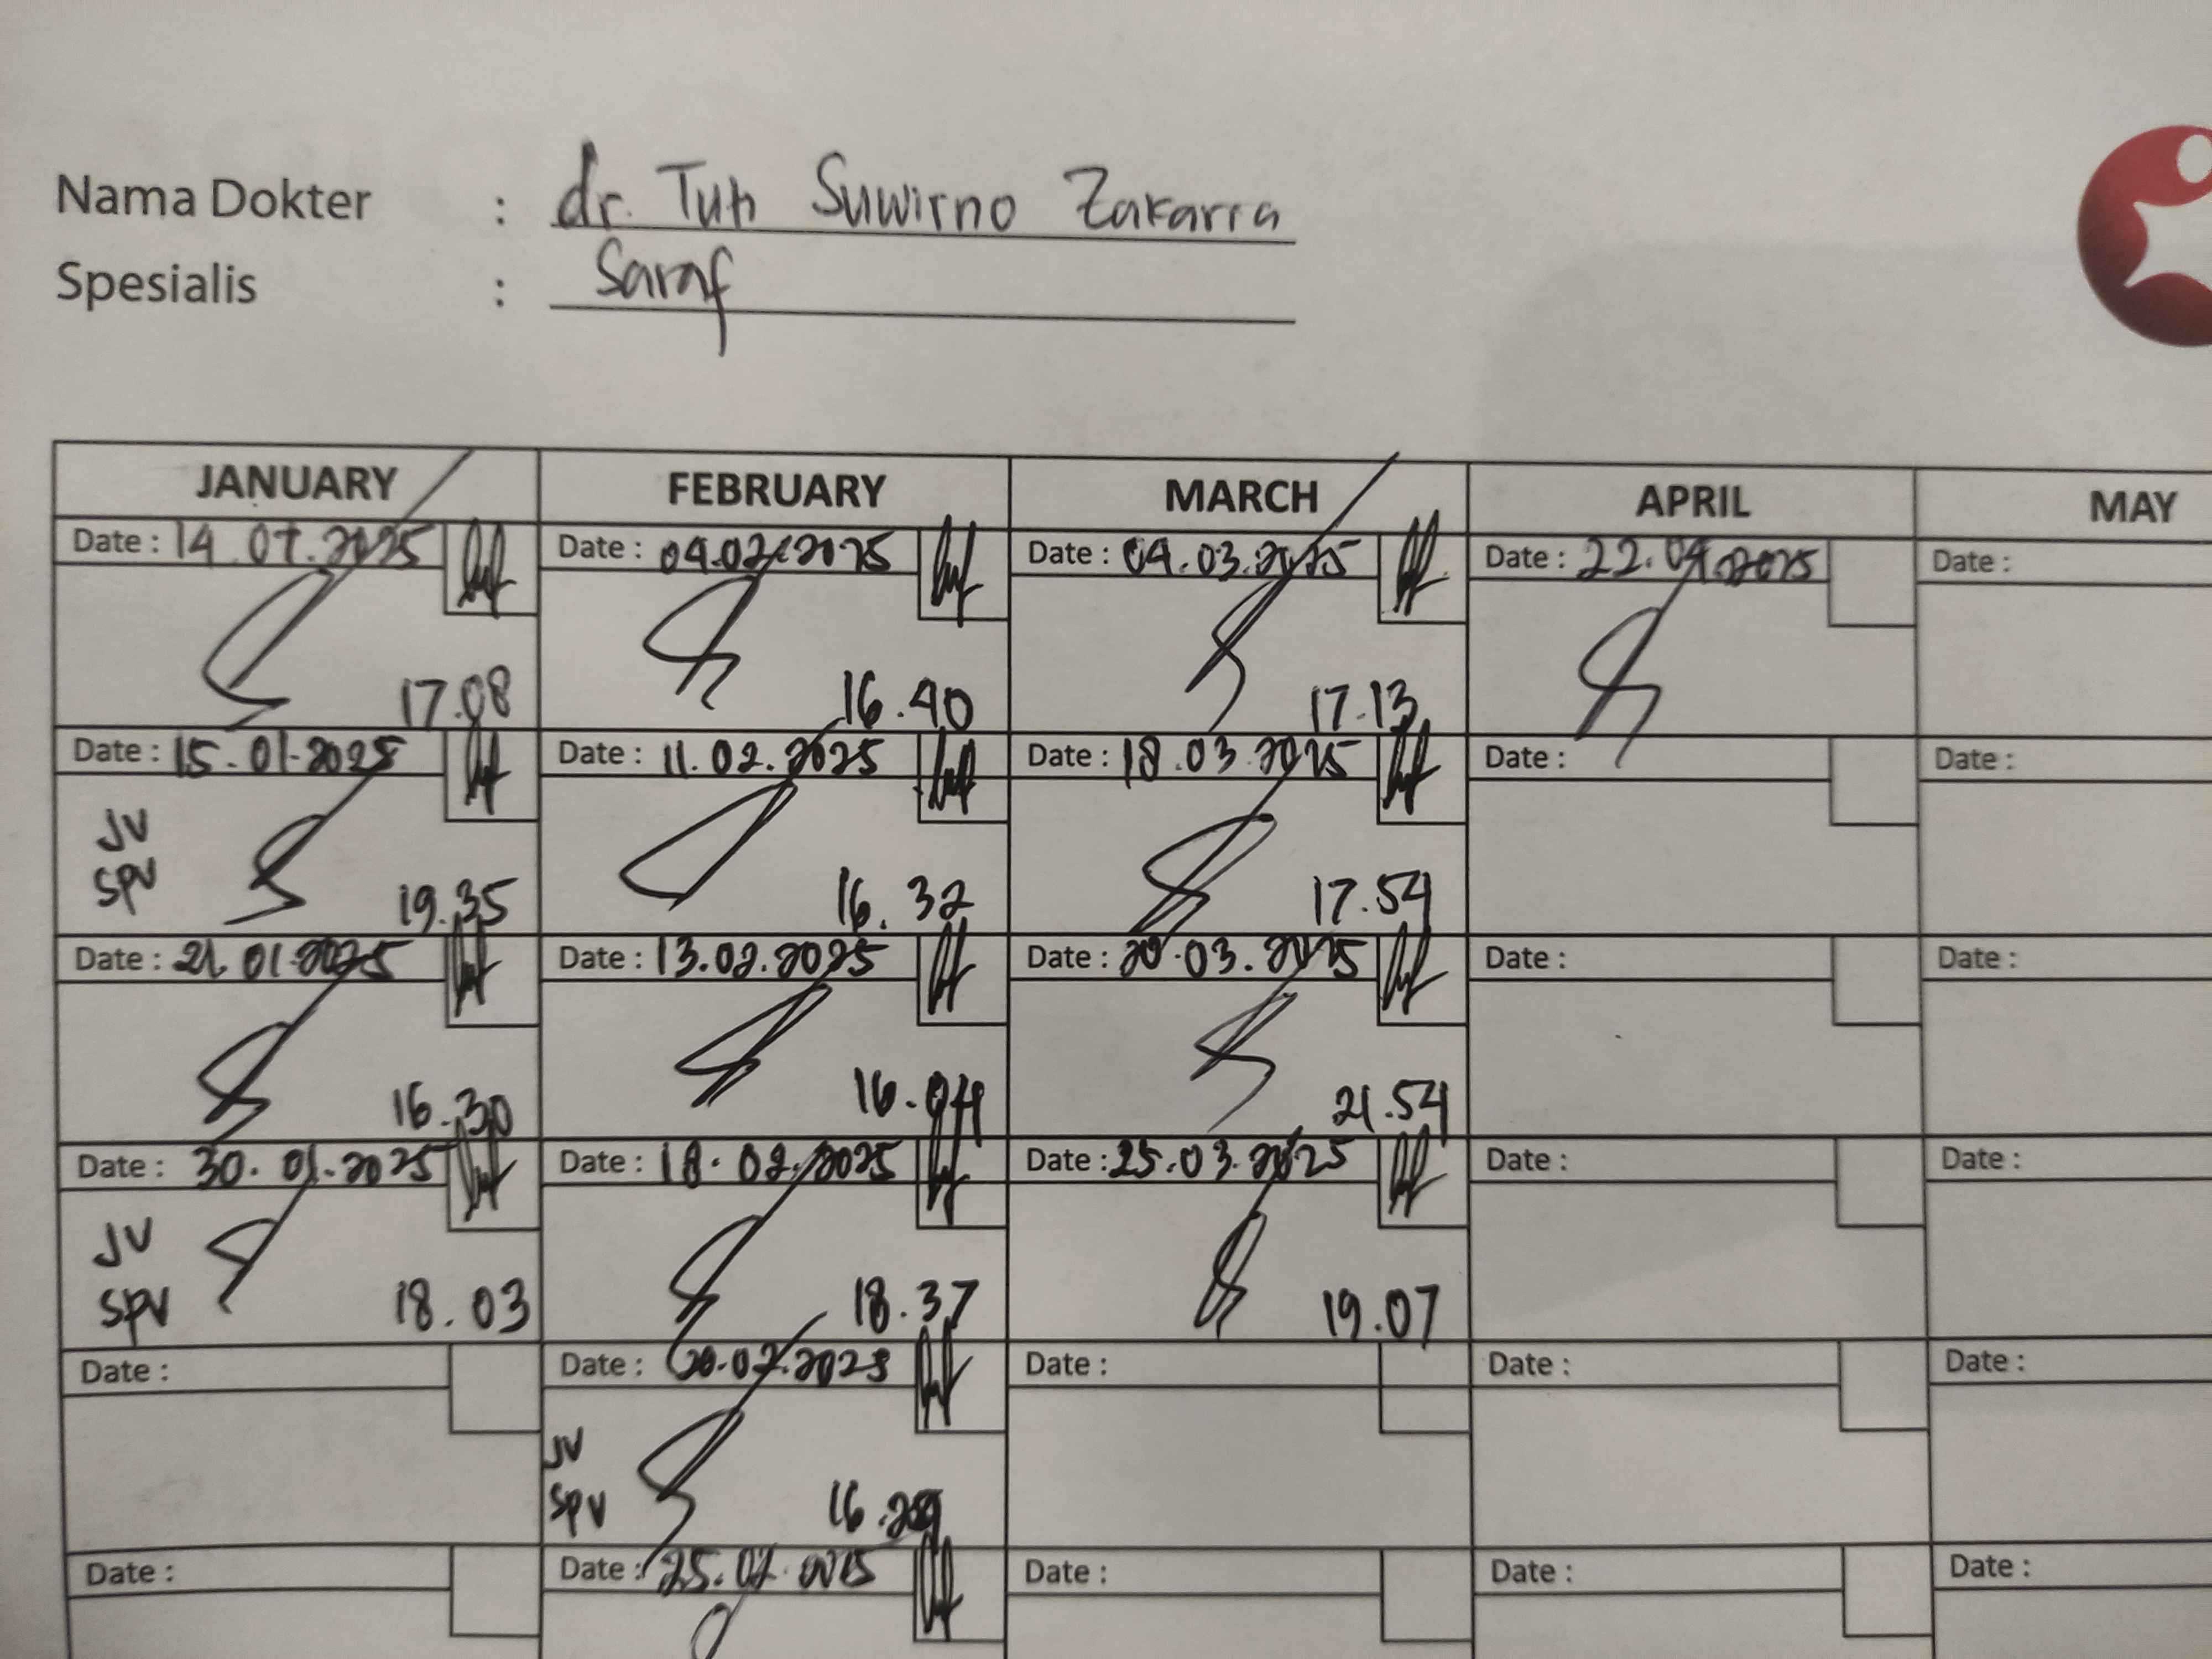 Nama Dokter : dr. Tuti Suwirno Zakaria
Spesialis : Saraf
JANUARY FEBRUARY MARCH APRIL MAY
Date : 14.01.2025 Date : 04.02.2025 Date : 04.03.2025 Date : 22.04.2025 Date :
17.08 16.40 17.13
Date : 15-01-2025 Date : 11.02.2025 Date : 18.03.2025 Date : Date :
JV
SPV 19.35 16.32 17.54
Date : 21.01.2025 Date : 13.02.2025 Date : 20.03.2025 Date : Date :
16.30 16.04 21.54
Date : 30.01.2025 Date : 18.02.2025 Date : 25.03.2025 Date : Date :
JV
SPV 18.03 18.37 19.07
Date : Date : 20.02.2025 Date : Date : Date :
JV
SPV 16.
Date : Date : 25.02.2025 Date : Date : Date :